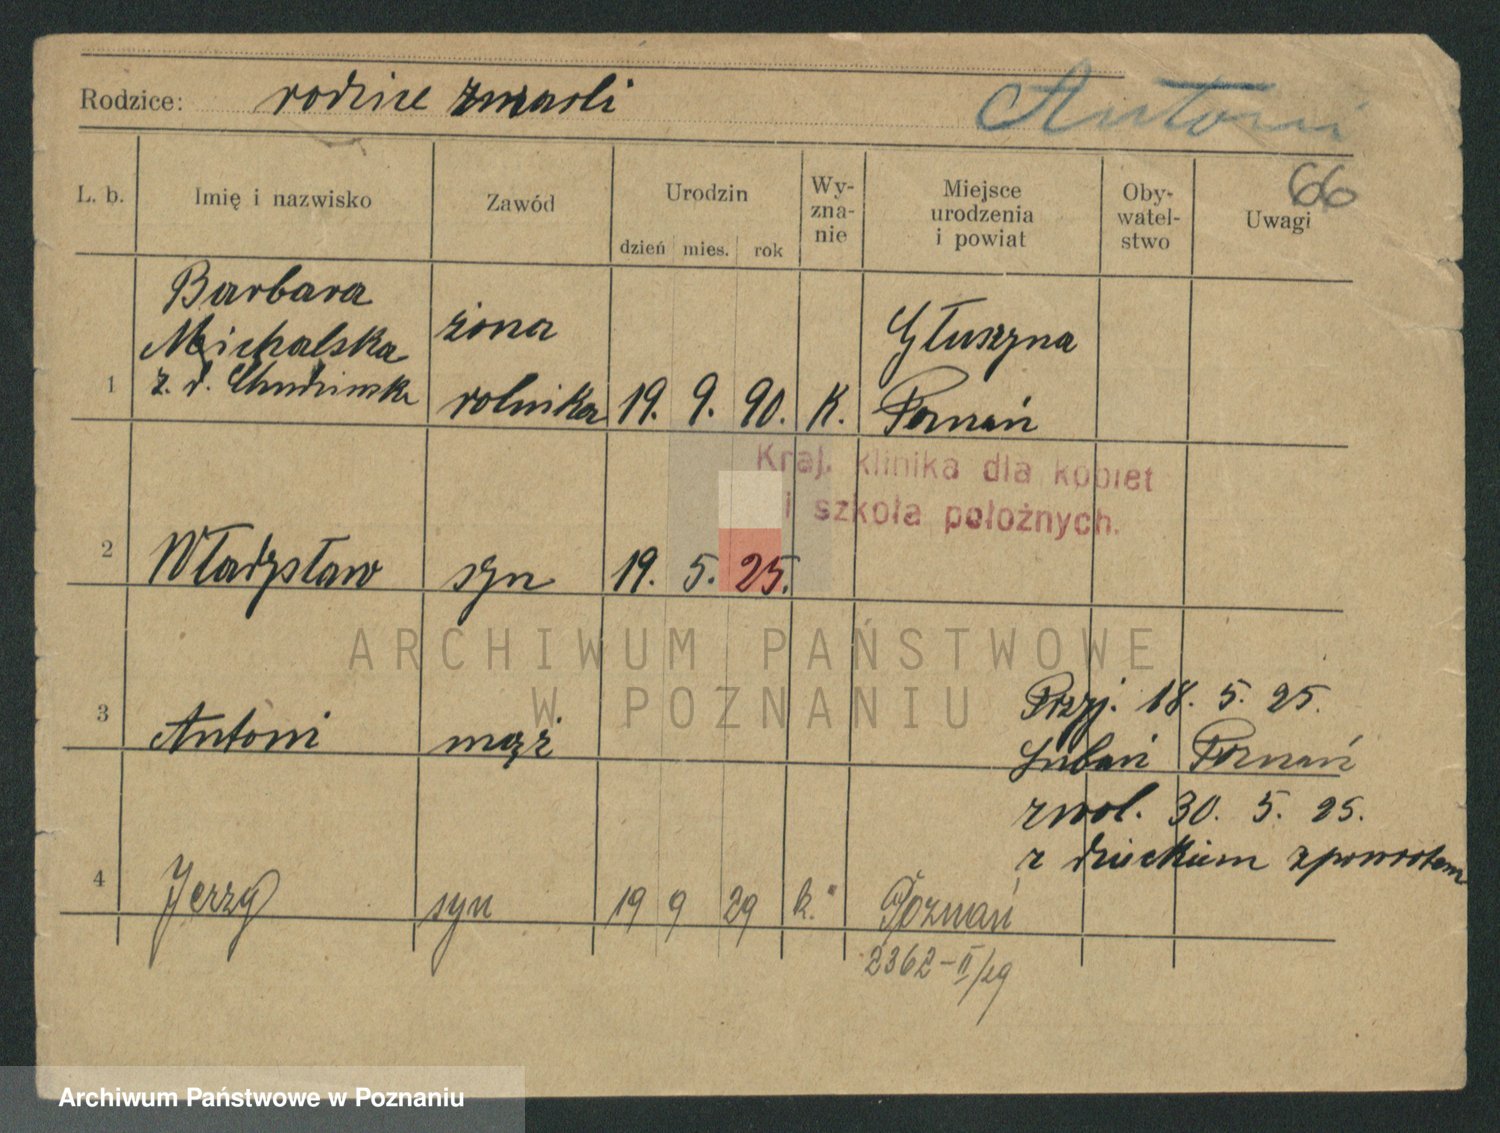 Rodzice: rodzice zmarli
Antoni
66
L. b. Imię i nazwisko Zawód Urodzin Wy-zna-nie Miejsce urodzenia i powiat Oby-watel-stwo Uwagi
dzień mies. rok
Barbara
Michalska żona Głuszyna
1 z. d. rolnika 19. 9. 90. K. Poznań
Kraj. klinika dla kobiet
i szkoła położnych.
2 Władysław syn 19. 5. 25.
ARCHIWUM PAŃSTWOWE
W POZNANIU
Przyj. 18. 5. 25.
3 Antoni mąż Lubań Poznań
zwol. 30. 5. 25.
z dzieckiem zpowrotem
4 Jerzy syn 19 9 29 k. Poznań
2362-II/29
Archiwum Państwowe w Poznaniu